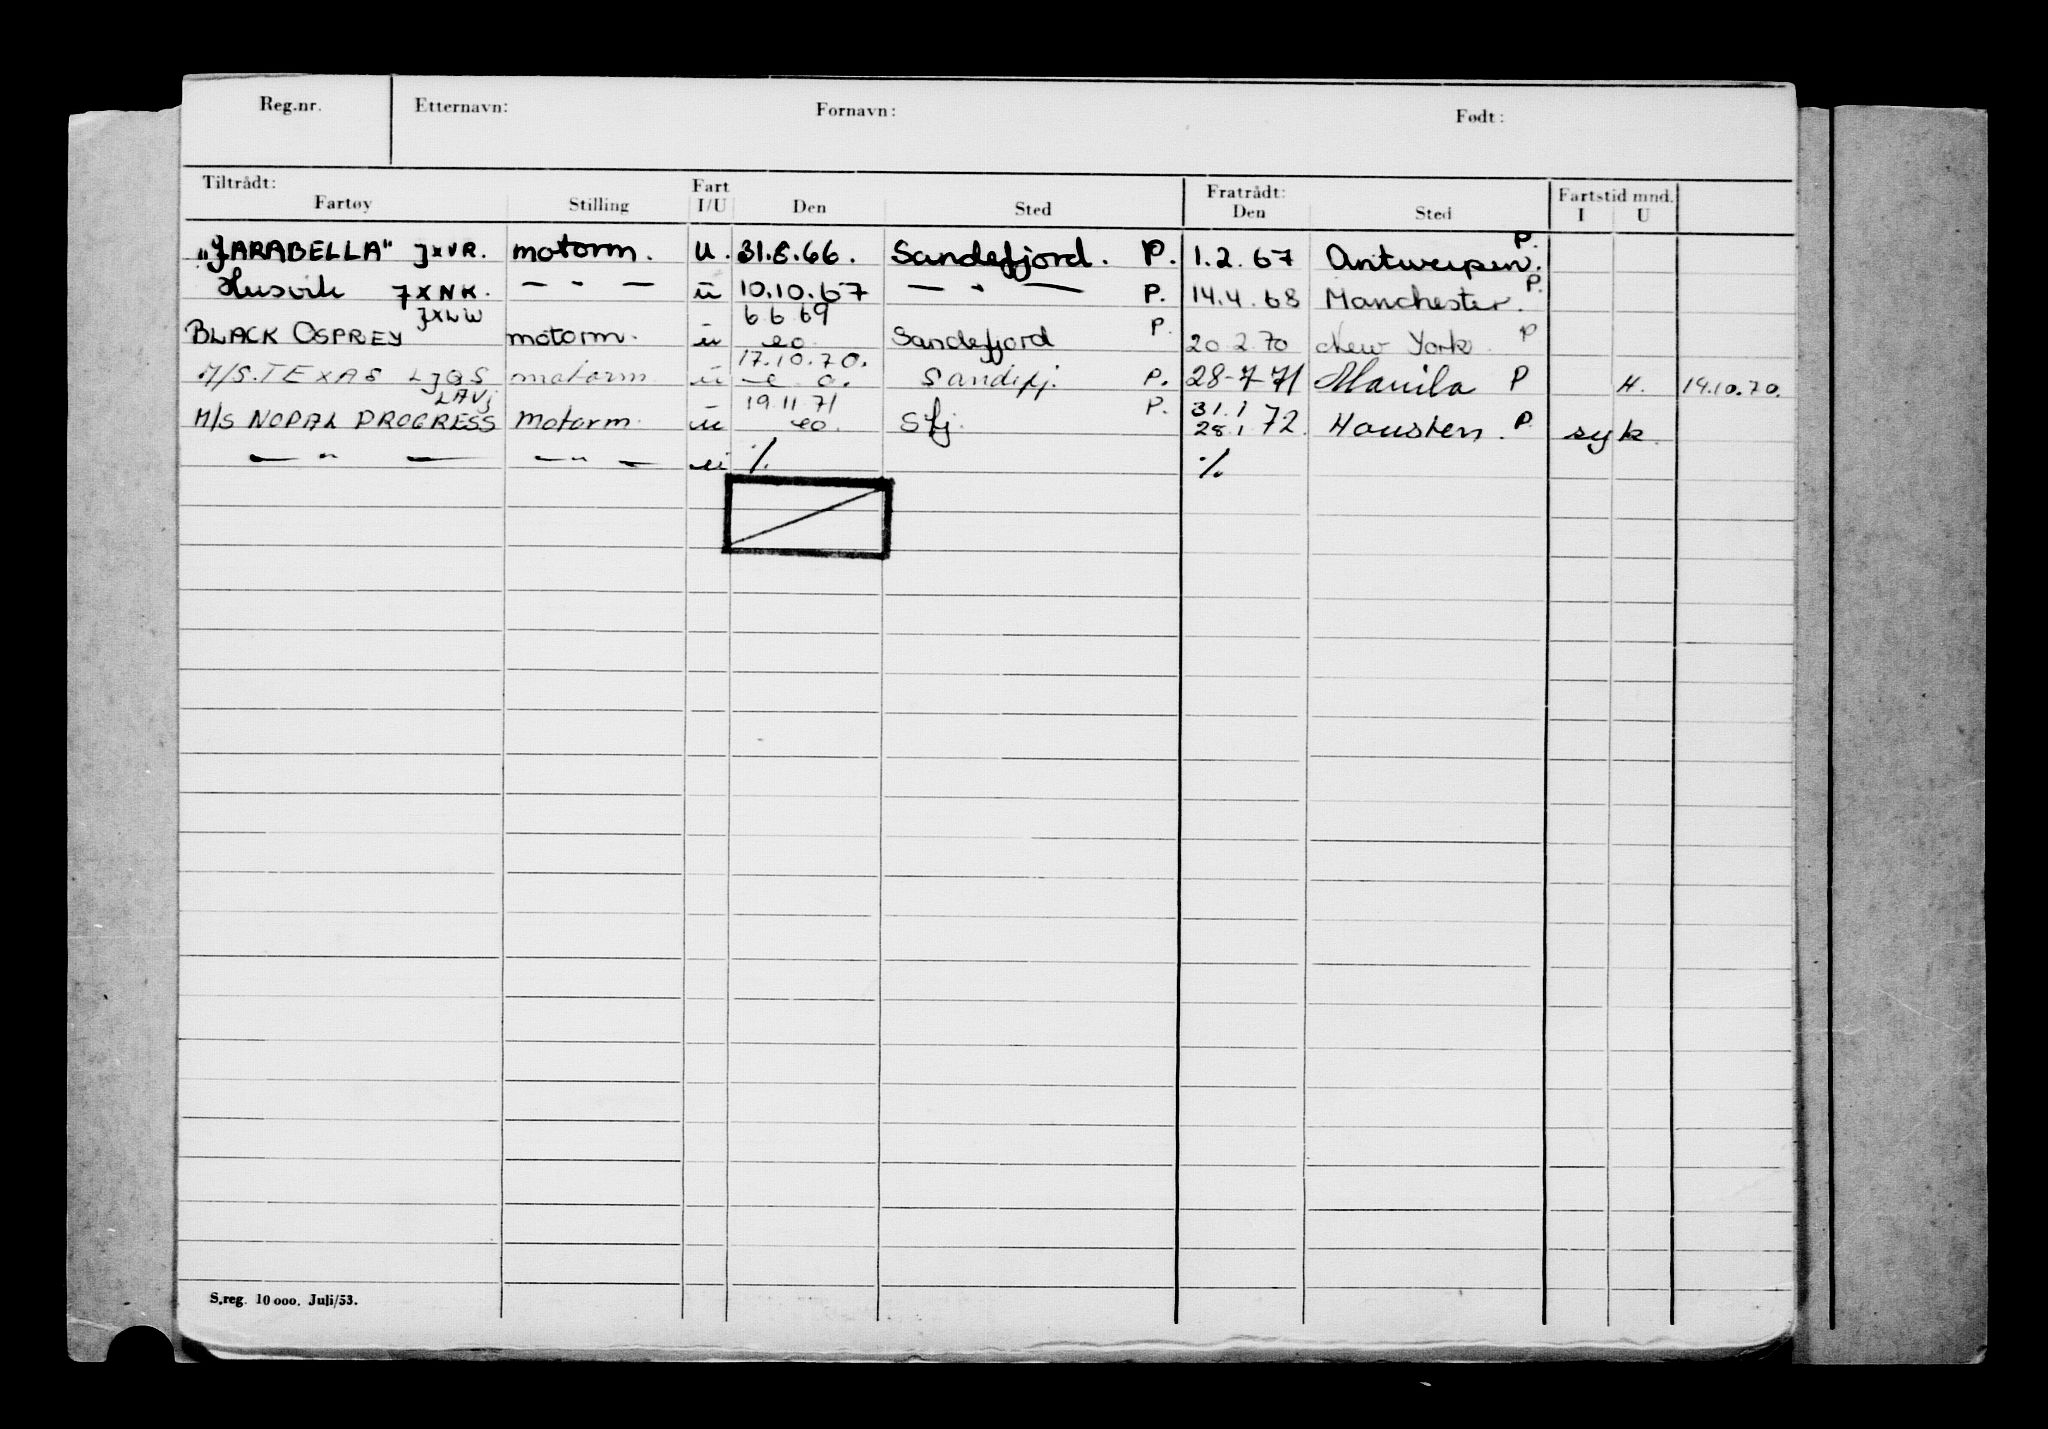 Reg.nr. Etternavn: Fornavn: Født:
Tiltrådt: Fart Fratrådt: Fartstid mnd.
Fartøy Stilling I/U Den Sted Den Sted I U
„JARABELLA" JXVR. motorm. U. 31.8.66. Sandefjord. P. 1.2.67 Antwerpen. P.
Husvik JXNK. — " — ü 10.10.67 — " — P. 14.4.68 Manchester. P.
JXLW 6 6 69
BLACK OSPREY motorm. ü eo. Sandefjord P. 20 2 70 New York. P
17.10.70.
M/S. TEXAS LJQS motorm ü e o. Sandefj. P. 28-7-71 Manila P H. 14.10.70.
LAVJ 19.11.71 31.1
M/S NOPAL PROGRESS Motorm. ü eo. Sfj. P. 28.1 72. Housten. P. syk.
— " — — " — ü ⁒ ⁒
S.reg. 10 000. Juli/53.